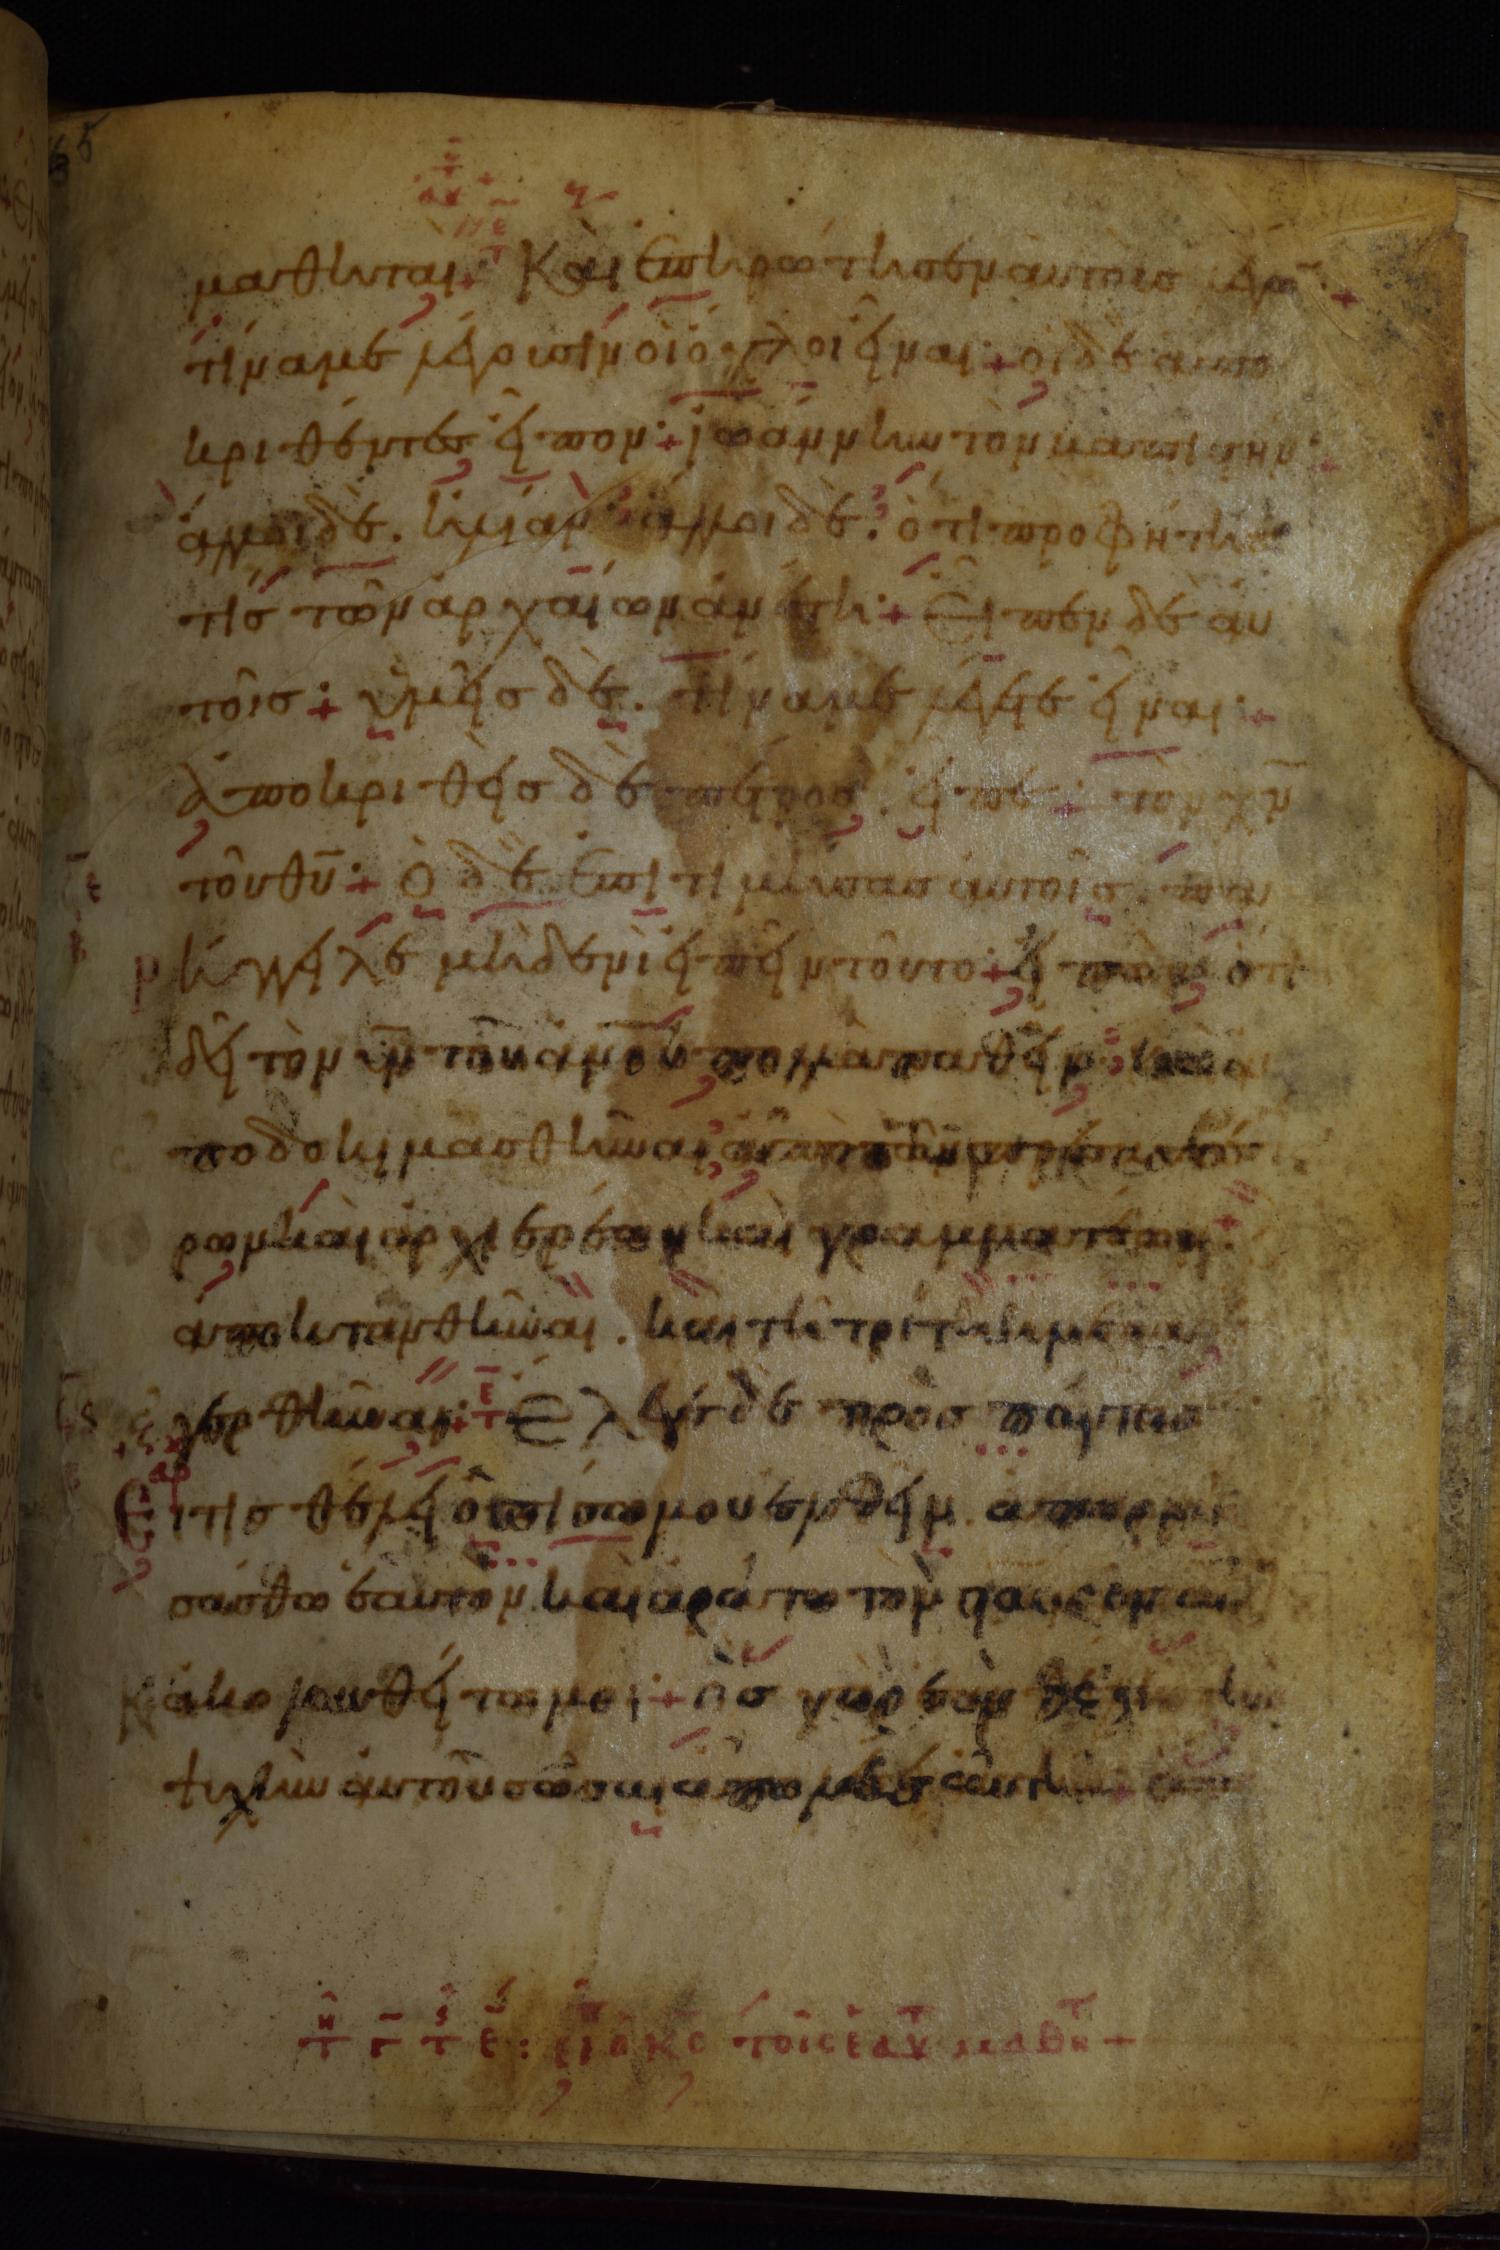 μαθηταί· Καὶ ἐπηρώτησεν αὐτοὺς λέγω̅
τίνα με λέγουσιν οἱ ὄχλοι εἶναι· οἱ δὲ ἀπο
κριθέντες εἶπον· ἰωάννην τὸν βαπτιστήν·
ἄλλοι δὲ. ἠλίαν· ἄλλοι δὲ. ὅτι προφήτης
τίς τῶν ἀρχαίων ἀνέστη· Εἶπεν δὲ αὐ
τοῖς· ὑμεῖς δὲ. τίνα με λέγετε εἶναι·
ἀποκριθεὶς δὲ πέτρος. εἶπε· τὸν χν̅
τοῦ θυ̅· ὁ δὲ ἐπιτιμήσας αὐτοῖς. παρ
ρήγγειλε μηδενὶ εἰπεῖν τοῦτο· εἰπὼν ὅτι
δεῖ τὸν υν̅ τοῦ ἀνου̅ πολλὰ παθεῖν· καὶ ἀ
ποδοκιμασθῆναι ἀπὸ τῶν πρεσβυτέ
ρων καὶ ἀρχιερέων καὶ γραμματέων·
ἀποκτανθῆναι. καὶ τῆ τρίτη ἡμέρα
ἐγερθῆναι· Ἔλεγε δὲ πρὸς πάντας
Εἴ τις θέλει ὀπίσω μου ἐλθεῖν. ἀπαρνη
σάσθω ἑαυτὸν καὶ ἀράτω τὸν σταυρὸν αὐτοῦ
Καὶ ἀκολουθείτω μοι· ὃς γὰρ ἐὰν θέλη τὴν
ψυχὴν αὐτοῦ σῶσαι ἀπολέσει αὐτήν·